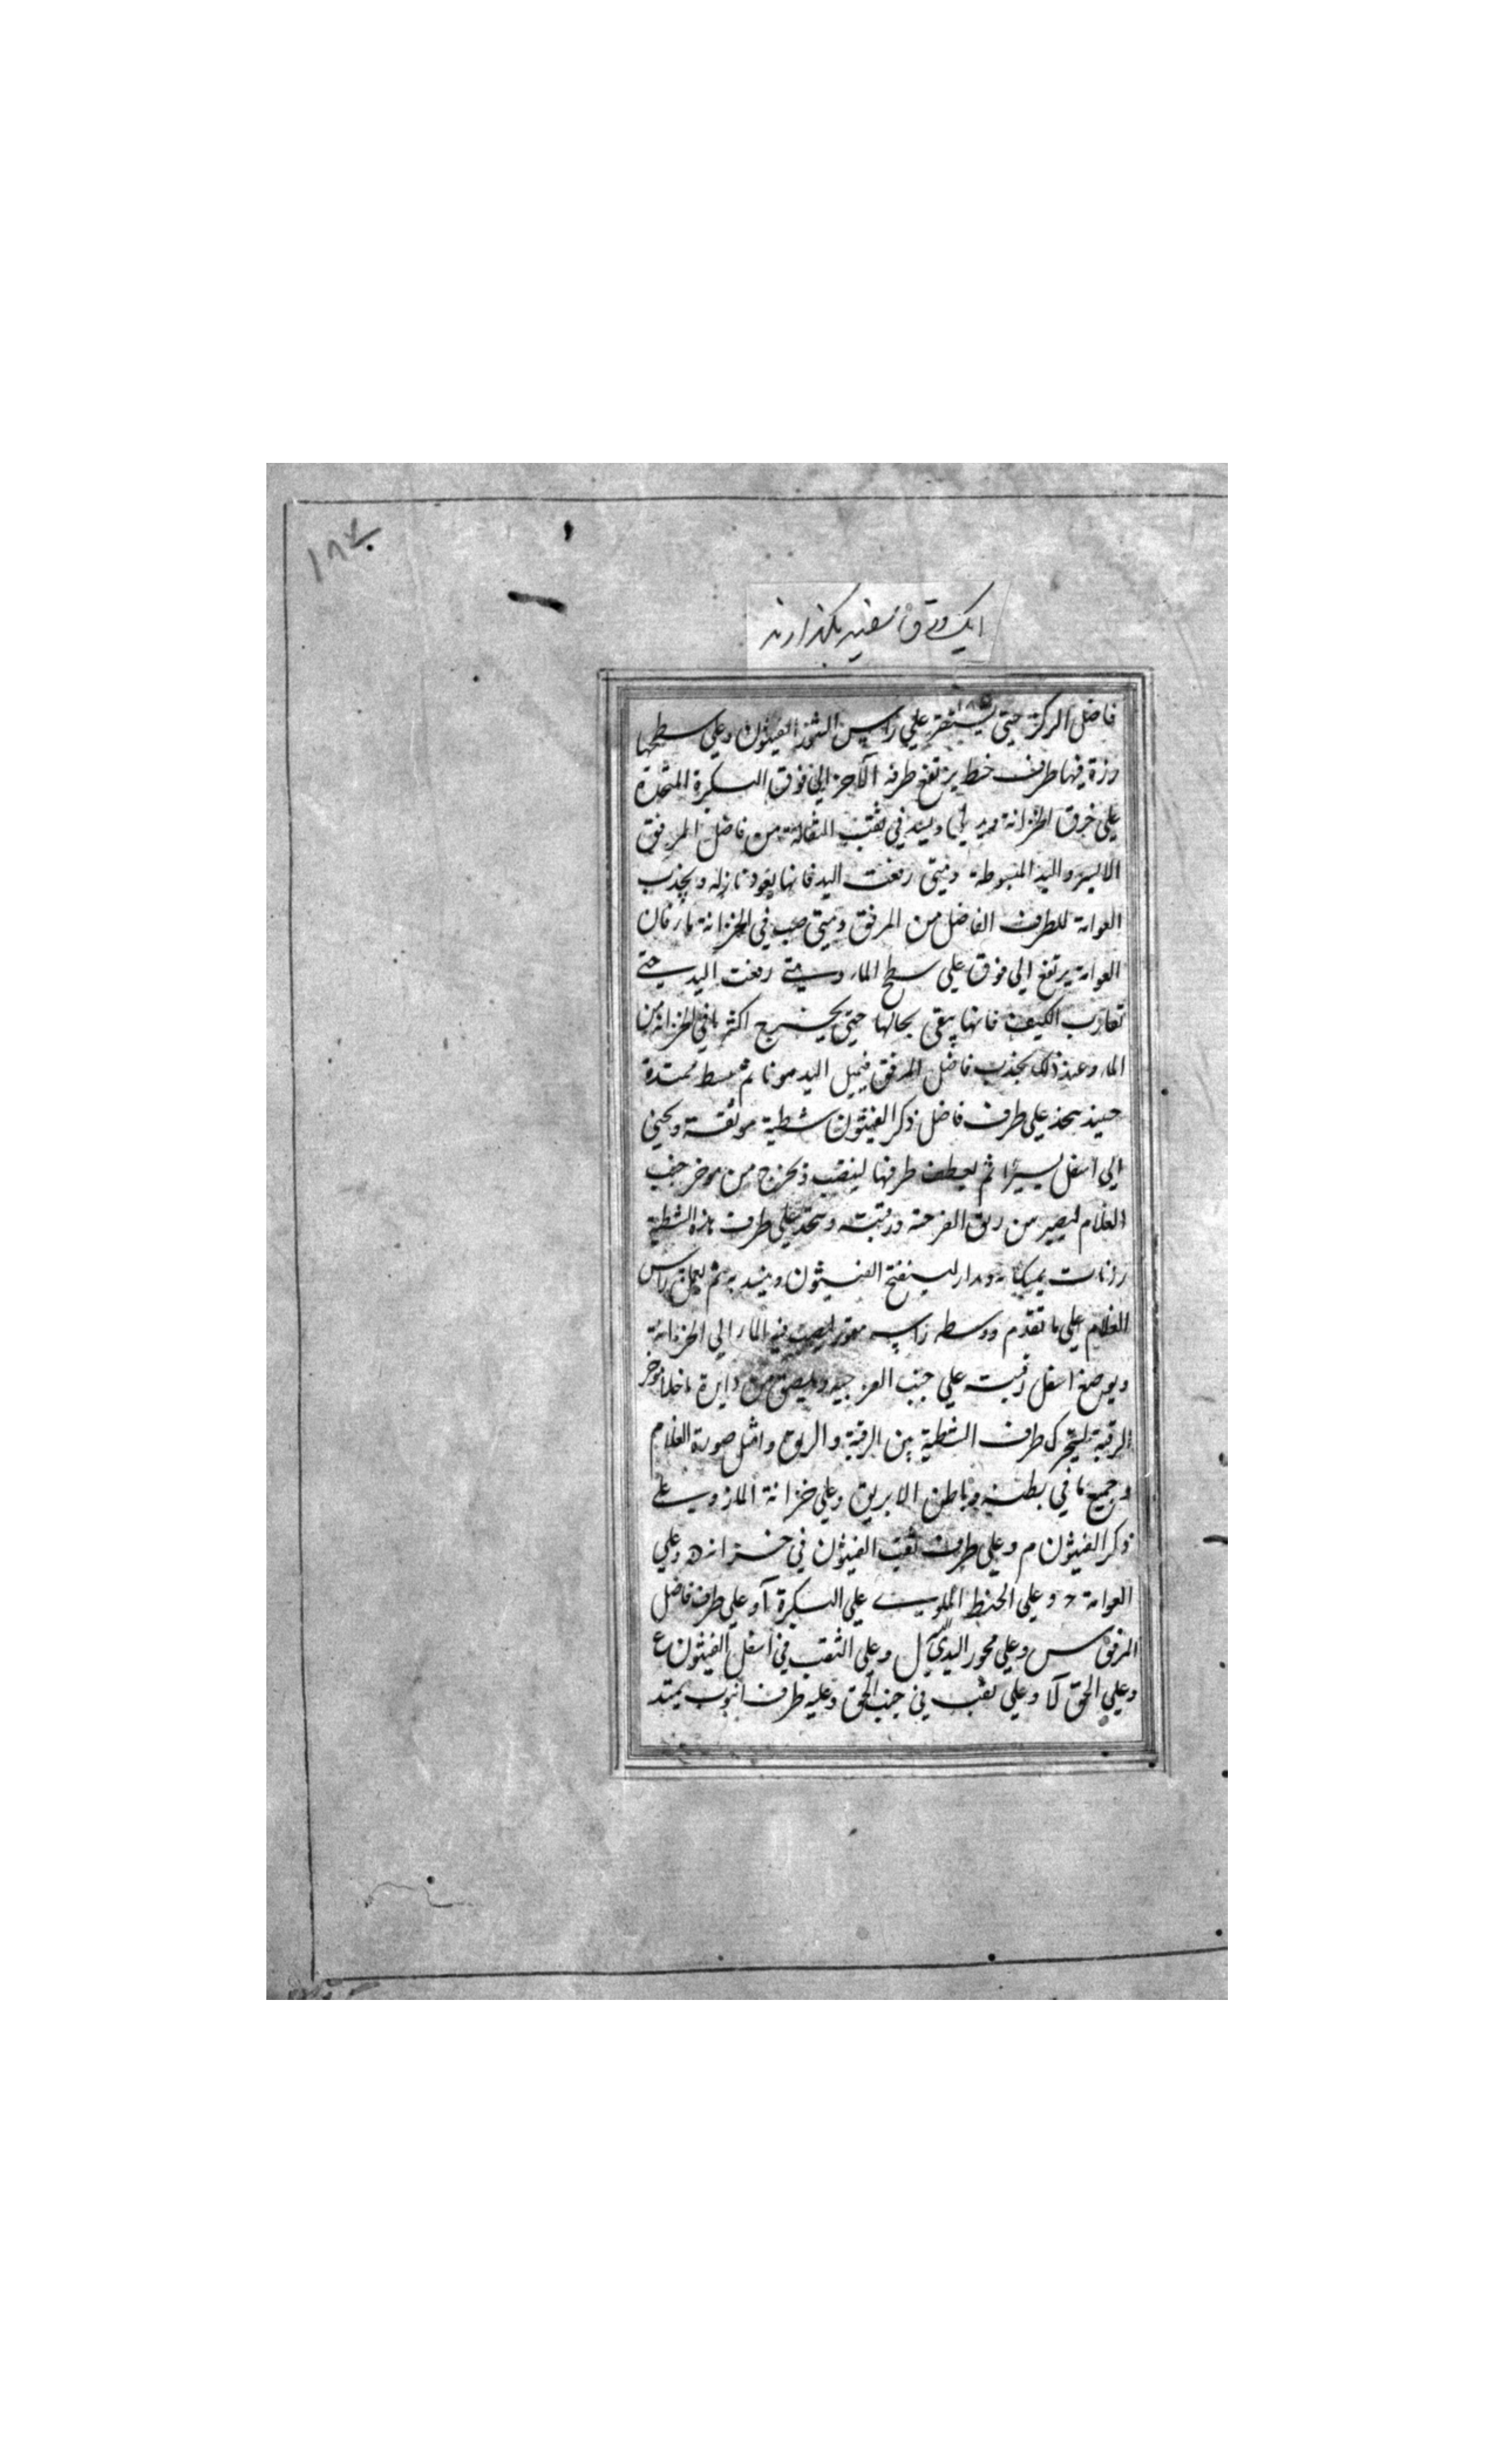 ١٨٧
يك ورق سفيد بگذارند
فاضل الركز حتى يستقر على راس الشمذ الفيثون وعلى سطحها
رزة فيها طرف خيط يرتفع طرفه الآخر الى فوق البسكرة المتخذة
على خرق الخزانة ويشد في ثقب الثقالة من فاضل المرفق
الايسر واليد المبسوطة ومتى رفعت اليد فانها يعود نازله ويجذب
العوامة للطرف الفاضل من المرفق ومتى صب في الخزانة ما فان
العوامة يرتفع الى فوق على سطح الماء ومتى رفعت اليد حتى
تقارب الكتف فانها يبقى بحالها حتى يخرج اكثر ما في الخزانة من
الماء وعند ذلك يجذب فاضل المرفق فيميل اليد هونا ثم يبسط ممتدة
يتخذ على طرف فاضل ذكر الفيثون شطية موثقة ويحنى
الى اسفل يسيرا ثم يعطف طرفها لينصب ويخرج من موخر جنب
الغلام ليصير من ريق الفرجية ورقبته ويتخذ على طرف هذه الشطية
رمانات يمكنا مدار لينفتح الفيثون وينسد به ثم يعمل راس
الغلام على ما تقدم ووسطه راسه ليصب فيه الماء الى الخزانة
ويوضع اسفل رقبته على جنب الفرجيه ويلصق من دايرة ما خلا موخر
الرقبة ليتحرك طرف الشطية بين الرقبة والريق وامثل صورة الغلام
وجميع ما في بطنه وباطن الابريق وعلى خزانة الماء وعلى
ذكر الفيثون م وعلى طرف ثقب الفيثون في خزانه ه وعلى
العوامة د وعلى الخيط الملوى على البسكرة آ وعلى طرف فاضل
المرفق س وعلى محور اليد ل وعلى الثقب في اسفل الفيثون ع
وعلى الحق لا وعلى ثقب في جنب الحق وعليه طرف انبوب يمتد